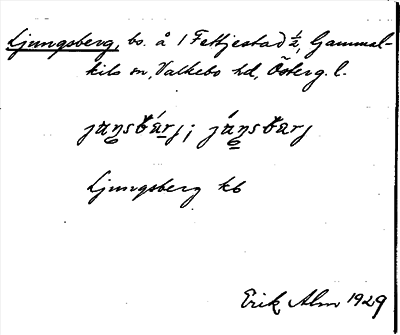 Ljungsberg, bs. å 1 Fettjestad ½, Gammal-
kils sn, Valkebo hd, Österg. l.
Ljungsberg kb
Erik Alm 1929